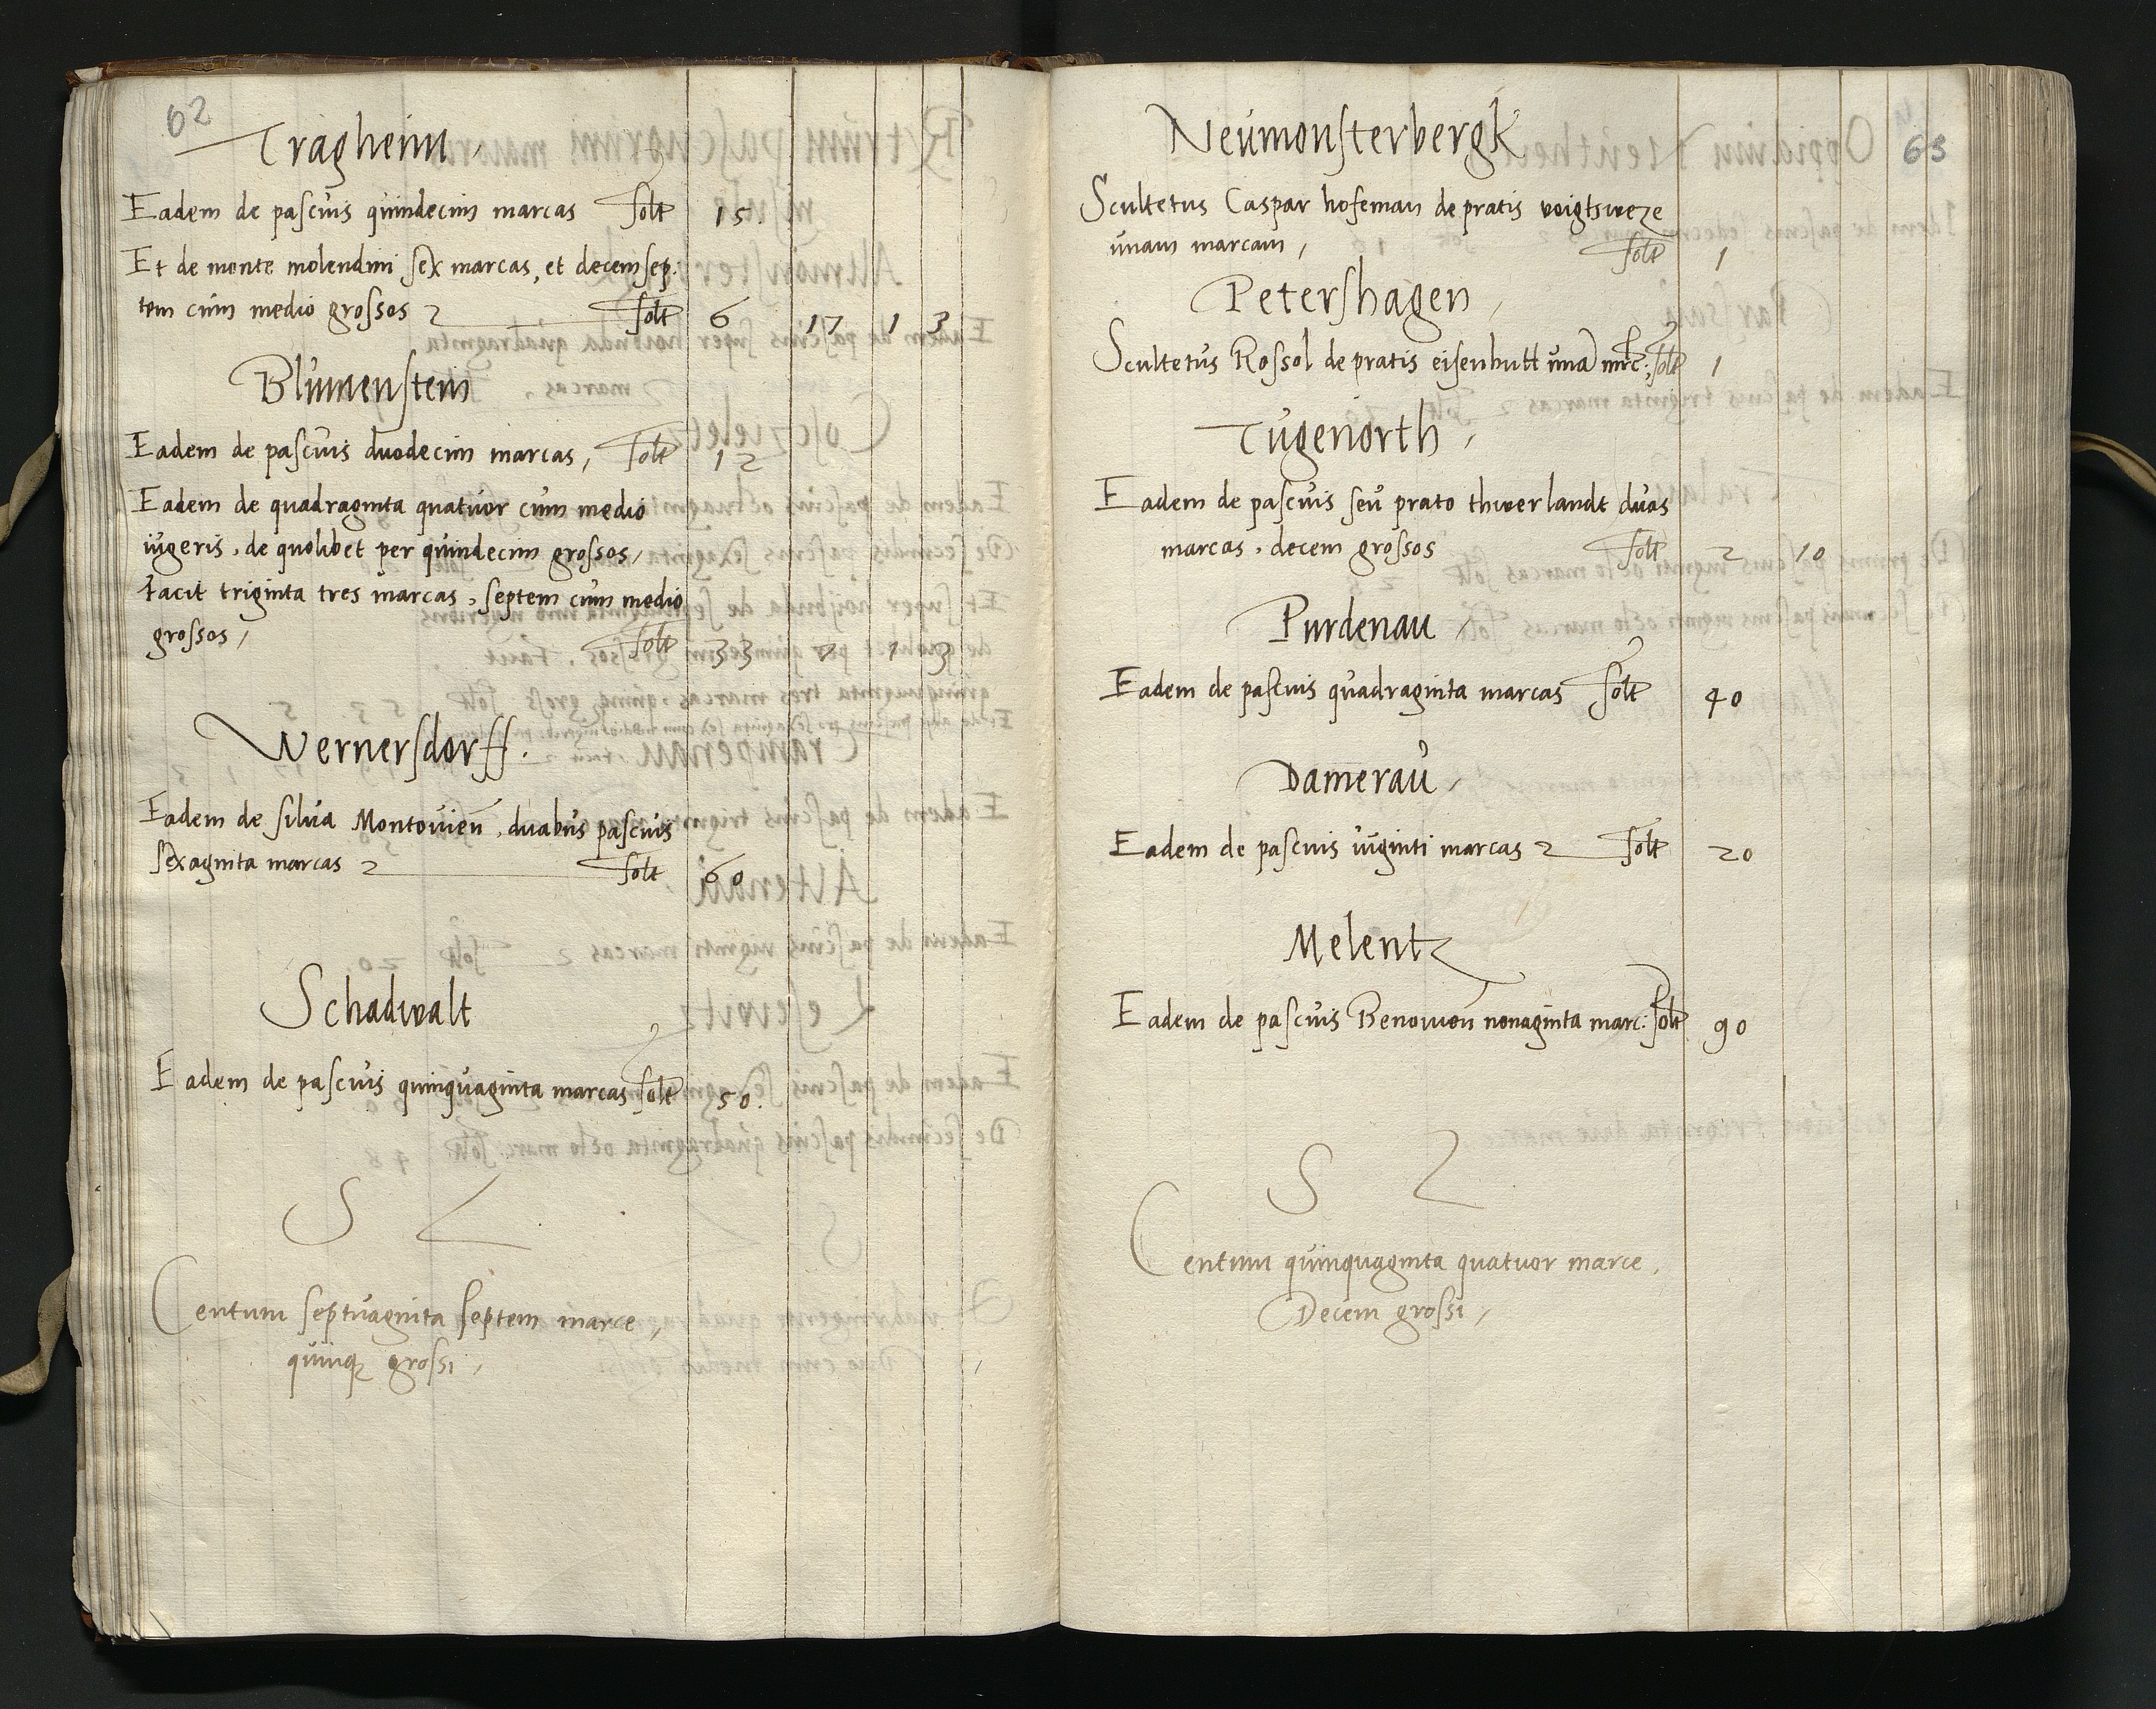 62
Tragheim,
Eadem de pascuis quindecim marcas solt 15.
Et de monte molendini sex marcas, et decem sep:
tem cum medio grossos solt 6 17 1 3
Blumenstein
Eadem de pascuis duodecim marcas, solt 12
Eadem de quadraginta quatuor cum medio
iugeris, de quolibet per quindecim grossos,
facit triginta tres marcas, septem cum medio
grossos, solt 33 7 1 3
Wernersdorff.
Eadem de silva Montovien, duabus pascuis
sexaginta marcas solt 60
Schadwalt
Eadem de pascuis quinquaginta marcas solt 50.
S
Centum septuaginta septem marce,
quinq grossi,
63
Neumonsterbergk
Scultetus Caspar hofeman de pratis voigtsweze
unam marcam, solt 1
Petershagen,
Scultetus Rossol de pratis eisenbutt una mrc: solt 1
Tugenorth,
Eadem de pascuis seu prato thwerlandt duas
marcas, decem grossos solt 2 10
Purdenau,
Eadem de pascuis quadraginta marcas solt 40
Damerau,
Eadem de pascuis viginti marcas solt 20
Melentz
Eadem de pascuis Benowen nonaginta marc: solt 90
S
Centum quinquaginta quatuor marce,
Decem grossi,